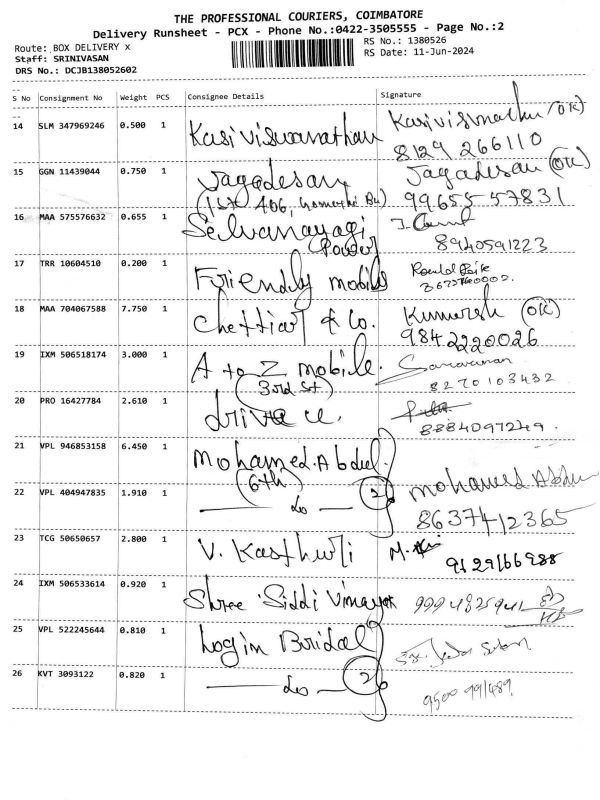 THE PROFESSIONAL COURIERS, COIMBATORE
Delivery Runsheet - PCX - Phone No.:0422-3505555 - Page No.:2
Route: BOX DELIVERY x
RS No.: 1380526
Staff: SRINIVASAN
RS Date: 11-Jun-2024
DRS No.: DCJB138052602
S No Consignment No Weight PCS Consignee Details Signature
14 SLM 347969246 0.500 1 Kasi viswanathan Kasiviswnathan (OK)
8129 266110
15 GGN 11439044 0.750 1 Jagadesan Jagadesan (OK)
(1st 406, 99655 57831
16 MAA 575576632 0.655 1 Selvanayagi
8940591223
17 TRR 10604510 0.200 1 Friendly mobiles
18 MAA 704067588 7.750 1 Chettiar & Co. Kumaresh (OK)
9842220026
19 IXM 506518174 3.000 1 A to Z mobile. Saravanan
(3rd st) 8270103432
20 PRO 16427784 2.610 1 drive u.
8884097249.
21 VPL 946853158 6.450 1 Mohamed.Abdul
(6th)
22 VPL 404947835 1.910 1 do 2 mohamed Abdul
8637412365
23 TCG 50650657 2.800 1 V. Kasthuri M.
9129166988
24 IXM 506533614 0.920 1 Shree Siddi Vinayak 9994825941
25 VPL 522245644 0.810 1 Login Bridal
26 KVT 3093122 0.820 1 do 2
9500 991489